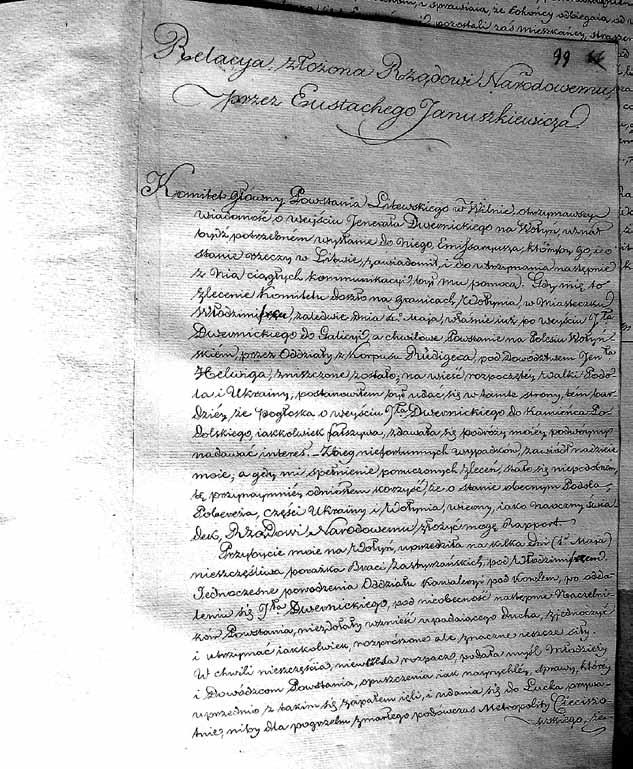 99
Relacya złożona Rządowi Narodowemu,
przez Eustachego Januszkiewicza.
Komitet główny Powstania Litewskiego w Wilnie, otrzymawszy
wiadomość o weyściu Jenerała Dwernickiego na Wołyń, uznał
bydź potrzebnem wysłanie do niego Emissaryusza, któryby go, o
stanie rzeczy w Litwie, zawiadomił, i do utrzymania następnie
z Nią ciągłych kommunikacyi był mu pomocą. Gdy mię to
zlecenie Komitetu doszło na granicach Wołynia, w Miasteczku
Włodzimirzcu, zaledwie dnia Maja, właśnie iuż po weyściu Jła
Dwernickiego do Galicyi, a chwilowe Powstanie na Polesiu Wołyń-
skiem, przez Oddziały z Korpusu Rüdigera, pod Dowództwem Jenła
Helwiga, zniszczone zostało; na wieść rozpoczętey walki Podo-
la i Ukrainy, postanowiłem był udać się w tamte strony, tem bar-
dziey, że pogłoska o weyściu Jła Dwernickiego do Kamieńca Po-
dolskiego, iakkolwiek fałszywa, zdawała się podróży moiey podwóyny
nadawać interes. Zbieg niefortunnych wypadków, zawiódł nadzieie
moie; a gdy mi spełnienie pomienionych zleceń, stało się niepodobnem,
tę przynaymniey odniosłem korzyść, że o stanie obecnym Podola,
Pobereża, części Ukrainy i Wołynia, wierny, iako naoczny świa-
dek, Rządowi Narodowemu złożyć mogę Rapport.
Przybycie moie na Wołyń, uprzedziła na kilka dni (1º Maja)
nieszczęśliwa porażka Braci pod Włodzimirzcem.
Jednoczesne powodzenia Oddziału Kawaleryi pod Kowlem, po odda-
leniu się Jła Dwernickiego, pod nieobecność następnie Naczelni-
ków Powstania, niezdołały wznieść upadaiącego ducha, ziednoczyć
i utrzymać iakkolwiek rozprószone ale znaczne ieszcze siły.
W chwili nieszczęścia, rozpacz, podała myśl Młodzieży
i Dowódzcom Powstania, opuszczenia iak nayprędzey, sprawy, którey
uprzednio z takim się zapałem ięli, i udania się do Łucka, prywa-
tnie, niby dla pogrzebu zmarłego podówczas Metropolity Cieciszo-
wskiego,